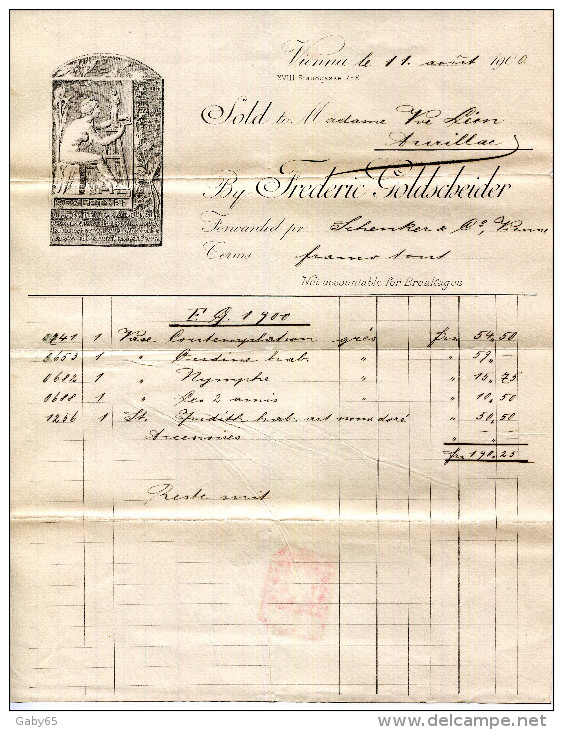 Vienna le 11. août 1900
XVIII Staudgasse
Sold to Madame Vve Léon
Aurillac
By Frederic Goldscheider
Forwarded pr. Schenker & Co, Vienne
Terms franco tout
Not accountable for Breakages
F. G. 1900
1 Vase Contemplation grès frs 54.50
0653 1 " Ondine hab. " " 59.—
0682 1 " Nymphe " " 15.75
0688 1 " Les 2 amis " " 10.50
1256 1 St. Judith hab. art nouv doré " 50.50
" "
frs 190.25
Reste suit
Gaby65
www.delcampe.net